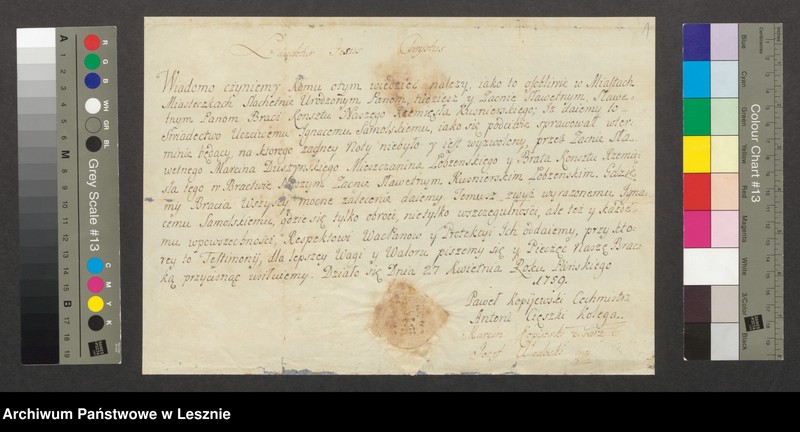 Laudetur Jesus Chrystus
Wiadomo czyniemy komu otym wiedzieć należy, iako to osobliwie w Miastach
Miasteczkach Szlachetnie Urodzonym Panom, niemniey y Zacnie Sławetnym, Sławe-
tnym Panom Braci Konsztu Naszego Rzemięsła Kusnierskiego; Iż daiemy to
Swiadectwo Uczciwemu Ignacemu Samolskiemu, iako się poczciwie sprawował w ter-
minie będący na ktorego żadney Noty niebyło y iest wyzwolony, przez Zacnie Sła-
wetnego Marcina Duszynskiego Mieszczanina Łobżenskiego y Brata Konsztu Rzemię-
sła tego w Bractwie Naszym Zacnie Sławetnym Kusnierskim Łobżenskim. Gdzie
my Bracia Wszyscy mocne zalecenie daiemy Temusz zwyż wyrazonemu Igna-
cemu Samolskiemu, gdzie się tylko obroci, nietylko wszczegulnosci, ale też y każde-
mu wpowszechnosci, Respektowi Wacpanow y Protekcyi Ich oddaiemy, przy kto-
rey to Testimonij, dla lepszey Wagi y Waloru piszemy się y Pieczęć Naszę Brac-
ką przycisnąć usiłuiemy. Działo się Dnia 27 Kwietnia Roku Pańskiego
1759.
Paweł Kopijewski Cechmistrz
Antoni Cięszki Kolega.
Marcin
Jozef
Archiwum Państwowe w Lesznie
Grey Scale #13
A 1 2 3 4 5 6 M 8 9 10 11 12 13 14 15 B 17 18 19
R G B WH GR BL
C M Y K
Colour Chart #13
Blue
Cyan
Green
Yellow
Red
Magenta
White
3/Color
Black
Inches
Centimetres